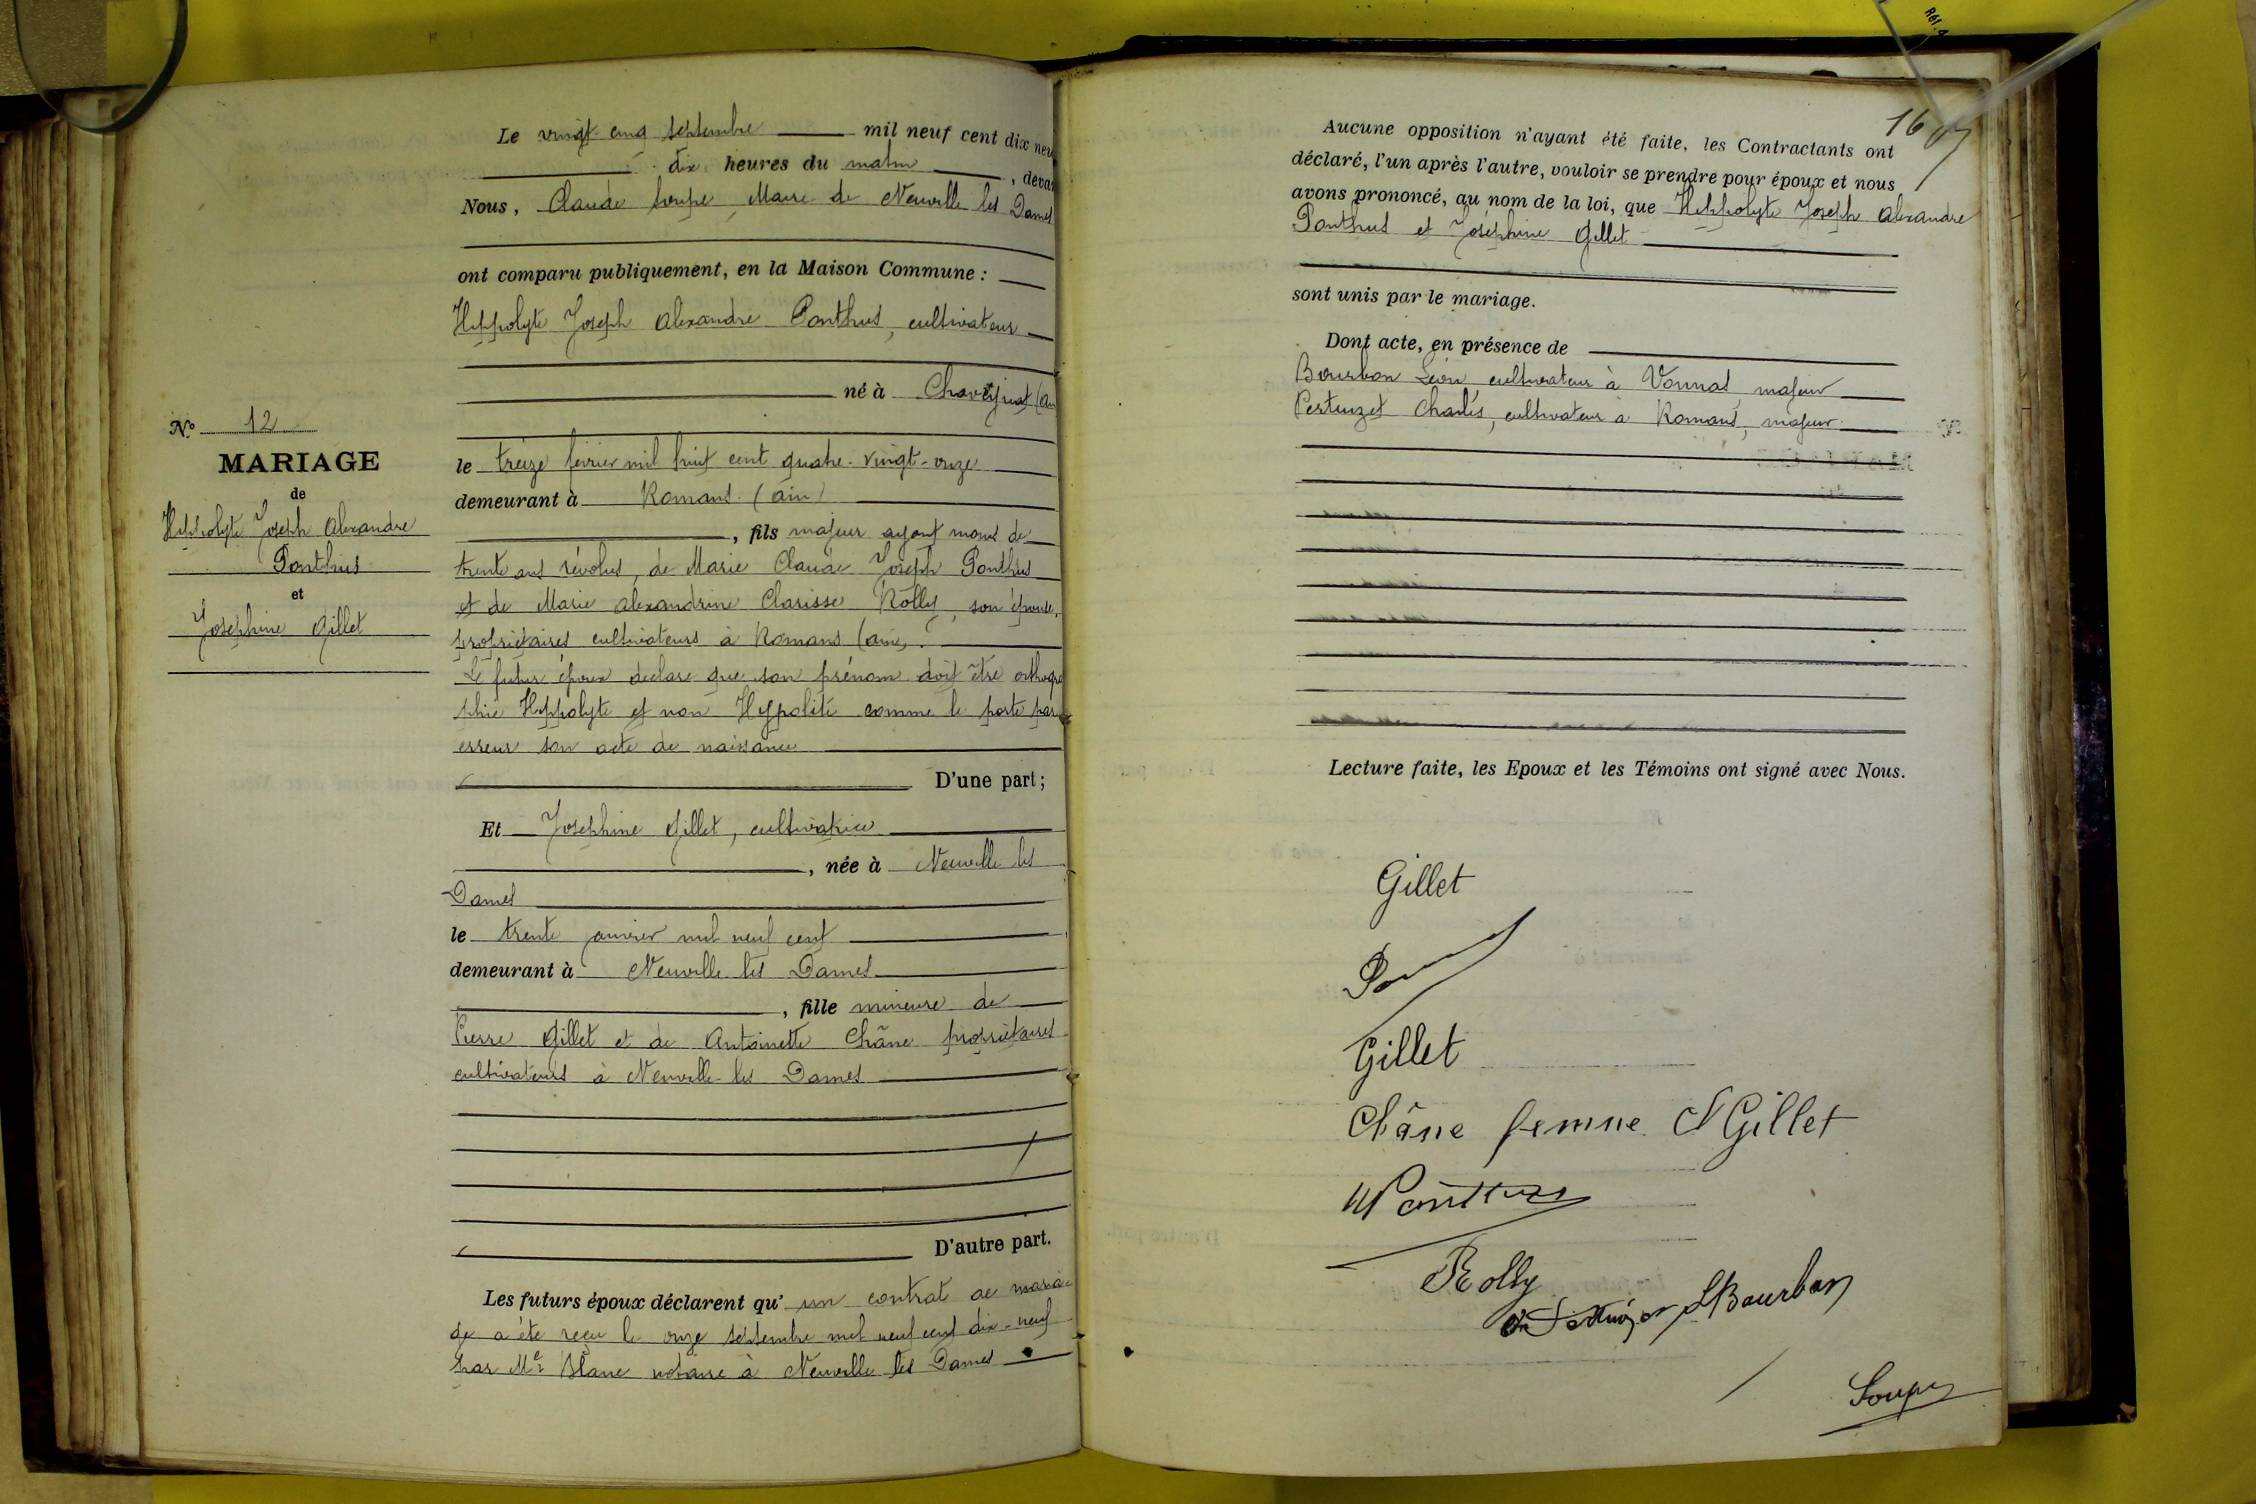 Le vingt-cinq septembre mil neuf cent dix neuf
dix heures du matin, devan
Nous, Claude Soupe, Maire de Neuville les Dames
ont comparu publiquement, en la Maison Commune :
Hippolyte Joseph Alexandre Ponthus, cultivateur
né à Chaveyriat (Ain
le treize février mil huit cent quatre-vingt-onze
demeurant à Romans (Ain)
, fils majeur ayant moins de
trente ans révolus, de Marie Claude Joseph Ponthus
et de Marie Alexandrine Clarisse Rolly, son épouse,
propriétaires cultivateurs à Romans (Ain).
Le futur époux déclare que son prénom doit être orthogra
phié Hippolyte et non Hyppolite comme le porte par
erreur son acte de naissance
D'une part ;
Et Joséphine Gillet, cultivatrice
, née à Neuville les
Dames
le trente janvier mil neuf cent
demeurant à Neuville les Dames
, fille mineure de
Pierre Gillet et de Antoinette Châne propriétaires
cultivateurs à Neuville les Dames
D'autre part.
Les futurs époux déclarent qu'un contrat de maria-
ge a été reçu le onze septembre mil neuf cent dix-neuf
par Me Blanc notaire à Neuville les Dames
No 12
MARIAGE
de
Hippolyte Joseph Alexandre
Ponthus
et
Joséphine Gillet
16
Aucune opposition n'ayant été faite, les Contractants ont
déclaré, l'un après l'autre, vouloir se prendre pour époux et nous
avons prononcé, au nom de la loi, que Hippolyte Joseph Alexandre
Ponthus et Joséphine Gillet
sont unis par le mariage.
Dont acte, en présence de
Bourbon Léon cultivateur à Vonnas, majeur
Pertuzet Charles, cultivateur à Romans, majeur
Lecture faite, les Epoux et les Témoins ont signé avec Nous.
Gillet
Gillet
Châne femme Gillet
Ponthus
Rolly
LBourbon
Soupe
Réf.